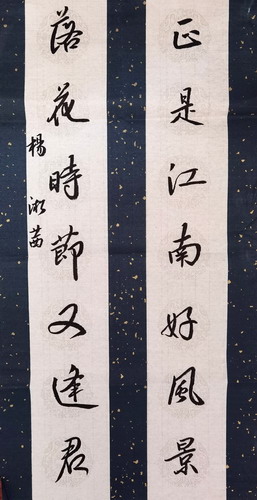 正是江南好風景
落花時節又逢君
楊淑茜